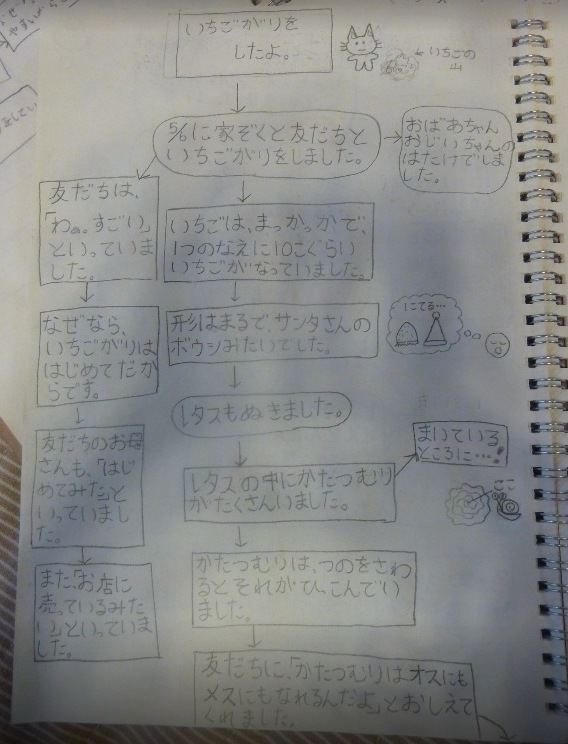 いちごがりを
したよ。
←いちごの
山
5/6に家ぞくと友だちと
いちごがりをしました。
おばあちゃん
おじいちゃんの
はたけでしま
した。
友だちは、
「わぁ。すごい」
といっていま
した。
いちごは、まっかっかで、
1つのなえに10こぐらい
いちごがなっていました。
なぜなら、
いちごがりは
はじめてだか
らです。
形はまるで、サンタさんの
ボウシみたいでした。
にてる…
レタスもぬきました。
友だちのお母
さんも、「はじ
めてみた」と
いっていまし
た。
レタスの中にかたつむり
がたくさんいました。
まいている
ところに…!
ここ
また「お店に
売っているみた
い」といっていま
した。
かたつむりは、つのをさわ
るとそれがひっこんでい
ました。
友だちに、「かたつむりはオスにも
メスにもなれるんだよ」とおしえて
くれました。